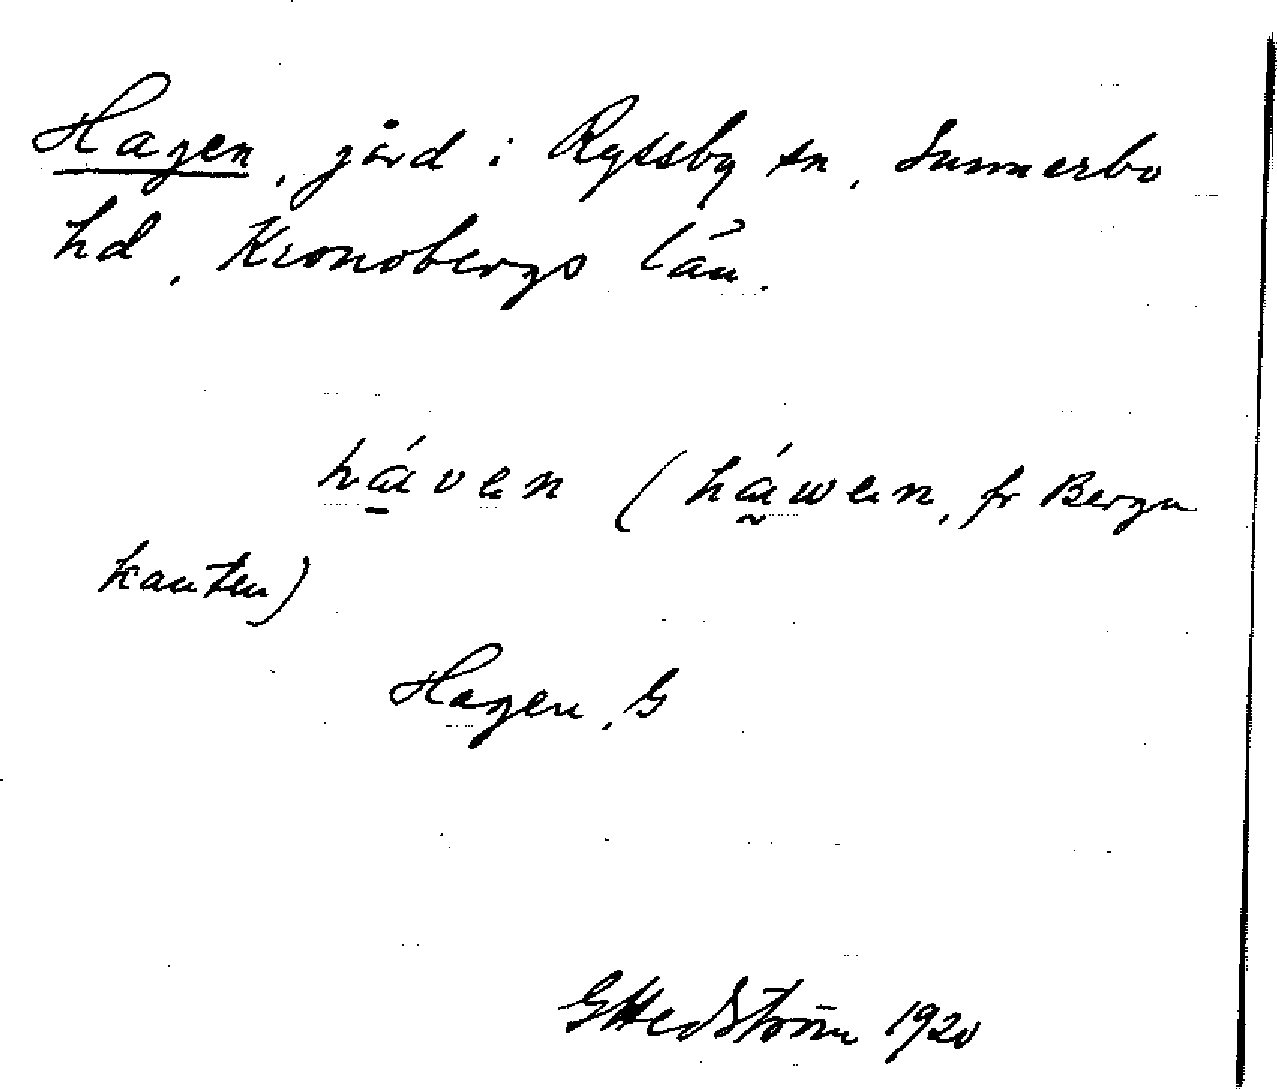 Hagen, gård i Ryssby sn, Sunnerbo
hd, Kronobergs län.
háven (háwen, fr Berga
kanten)
Hagen, G
G Hedström 1920